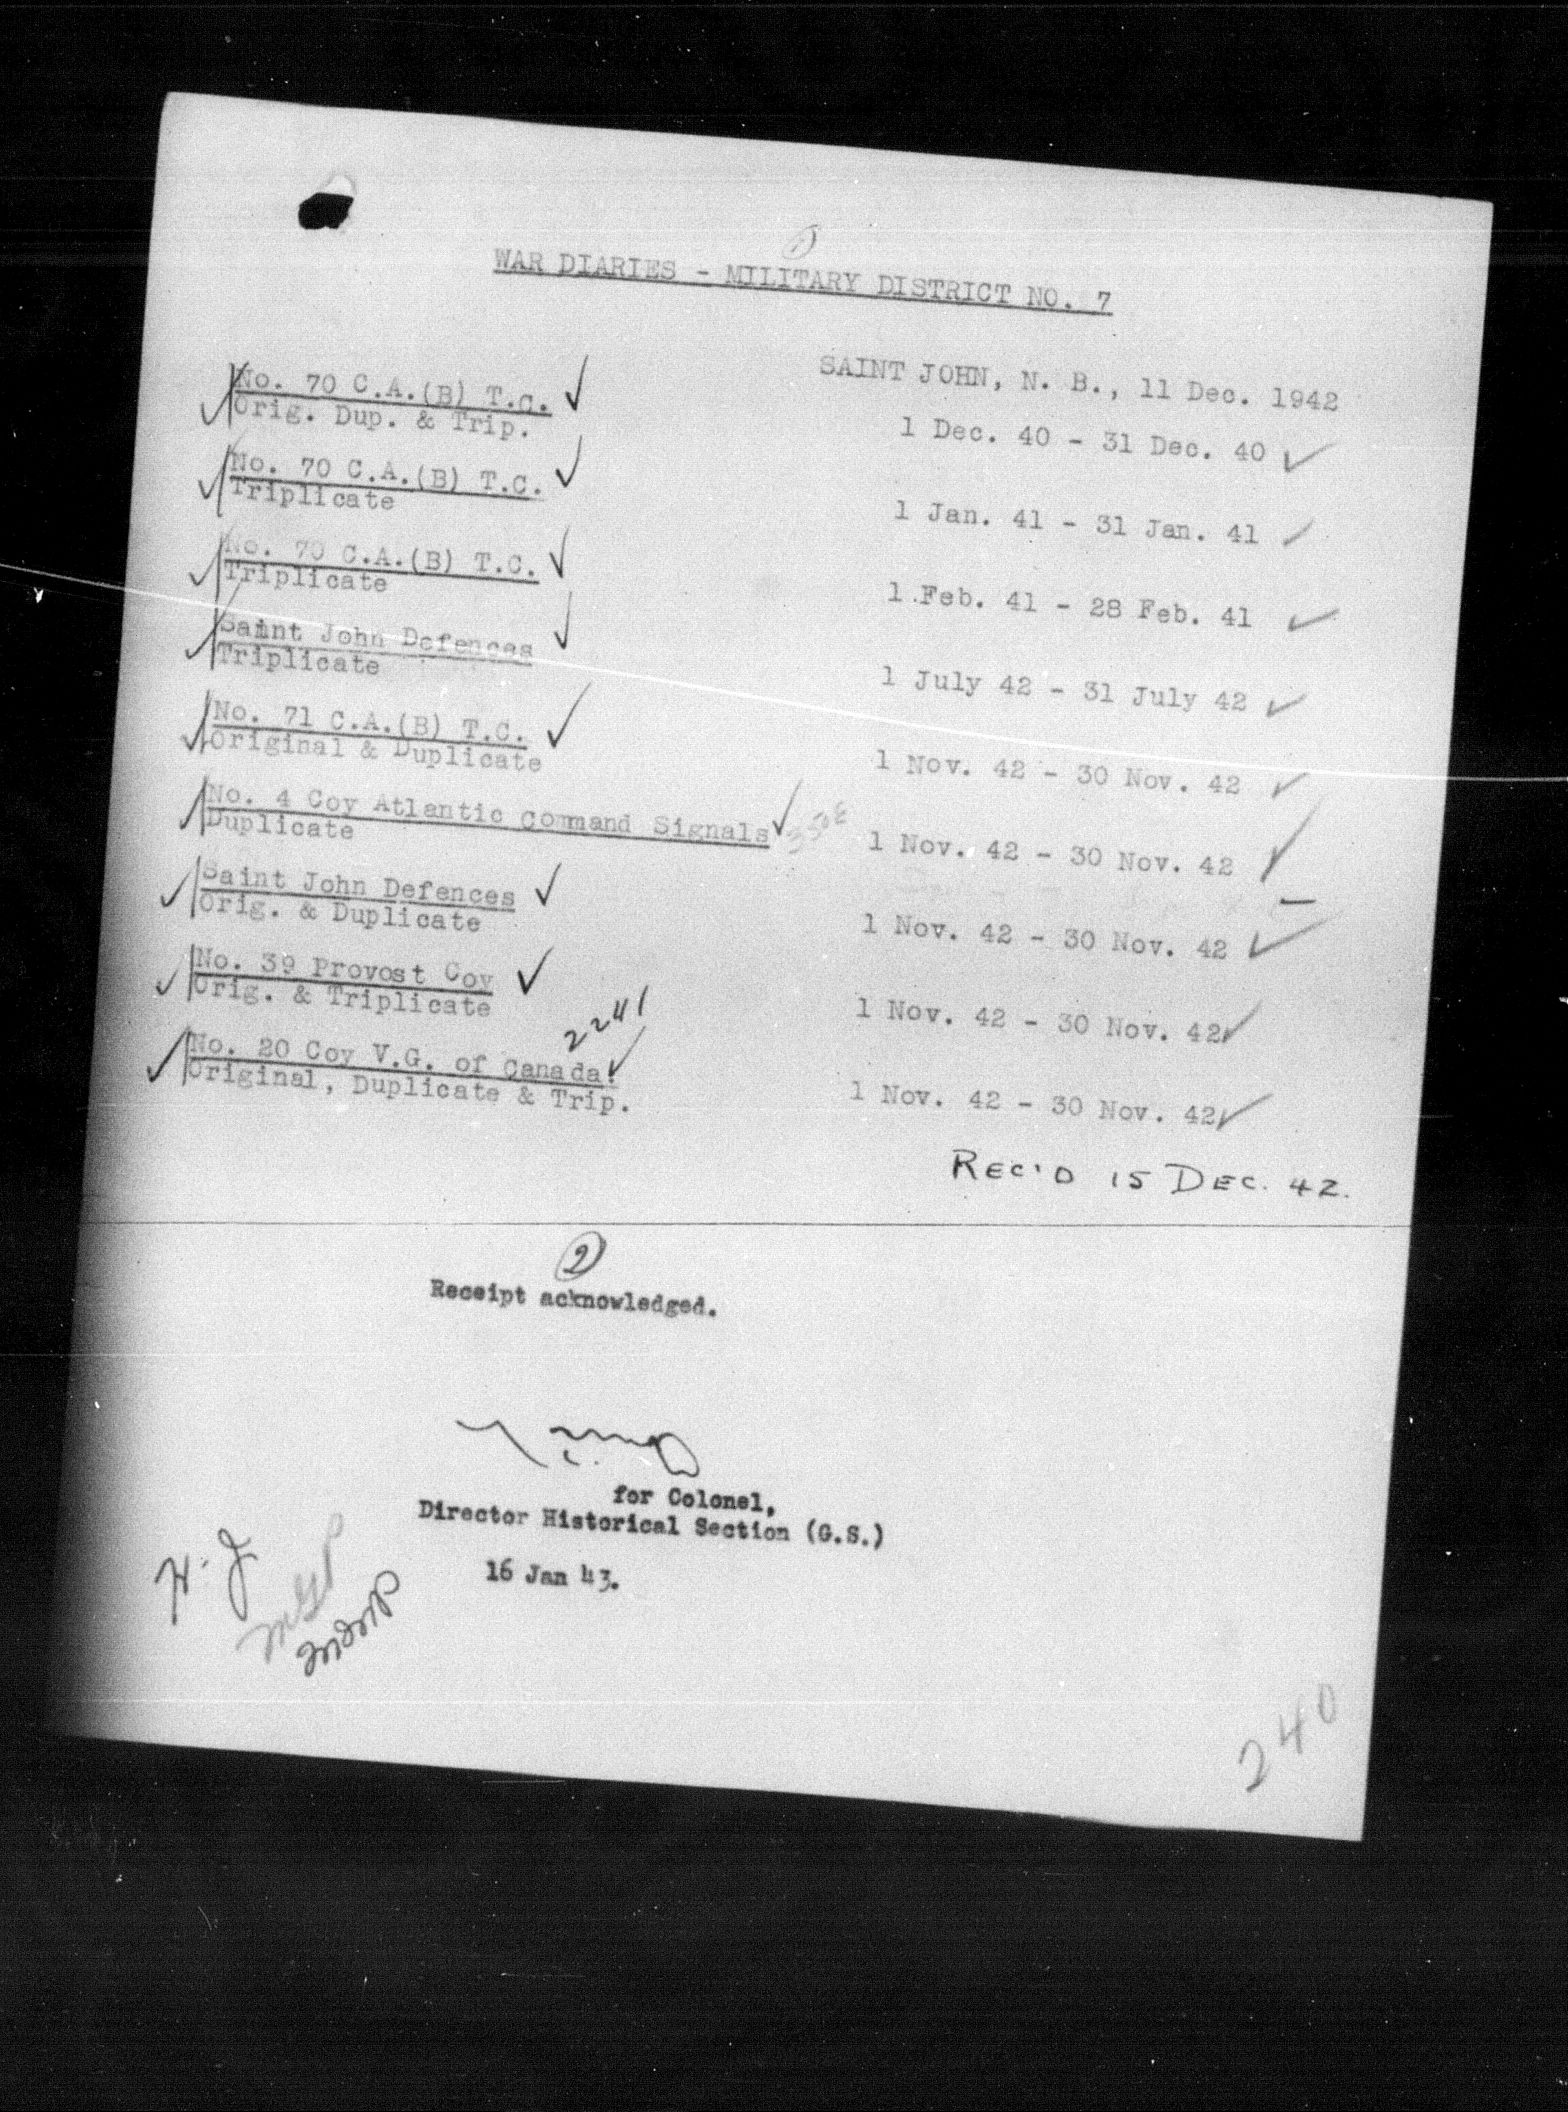 WAR DIARIES - MILITARY DISTRICT NO. 7
SAINT JOHN, N. B., 11 Dec. 1942
No. 70 C.A.(B) T.C.
Orig. Dup. & Trip.
1 Dec. 40 - 31 Dec. 40
No. 70 C.A.(B) T.C.
Triplicate
1 Jan. 41 - 31 Jan. 41
No. 70 C.A.(B) T.C.
Triplicate
1 Feb. 41 - 28 Feb. 41
Saint John Defences
Triplicate
1 July 42 - 31 July 42
No. 71 C.A.(B) T.C.
Original & Duplicate
1 Nov. 42 - 30 Nov. 42
No. 4 Coy Atlantic Command Signals
Duplicate
1 Nov. 42 - 30 Nov. 42
Saint John Defences
Orig. & Duplicate
1 Nov. 42 - 30 Nov. 42
No. 39 Provost Coy
Orig. & Triplicate
1 Nov. 42 - 30 Nov. 42
2241
No. 20 Coy V.G. of Canada.
Original, Duplicate & Trip.
1 Nov. 42 - 30 Nov. 42
REC'D 15 DEC. 42.
2
Receipt acknowledged.
for Colonel,
Director Historical Section (G.S.)
16 Jan 43.
H.J
240